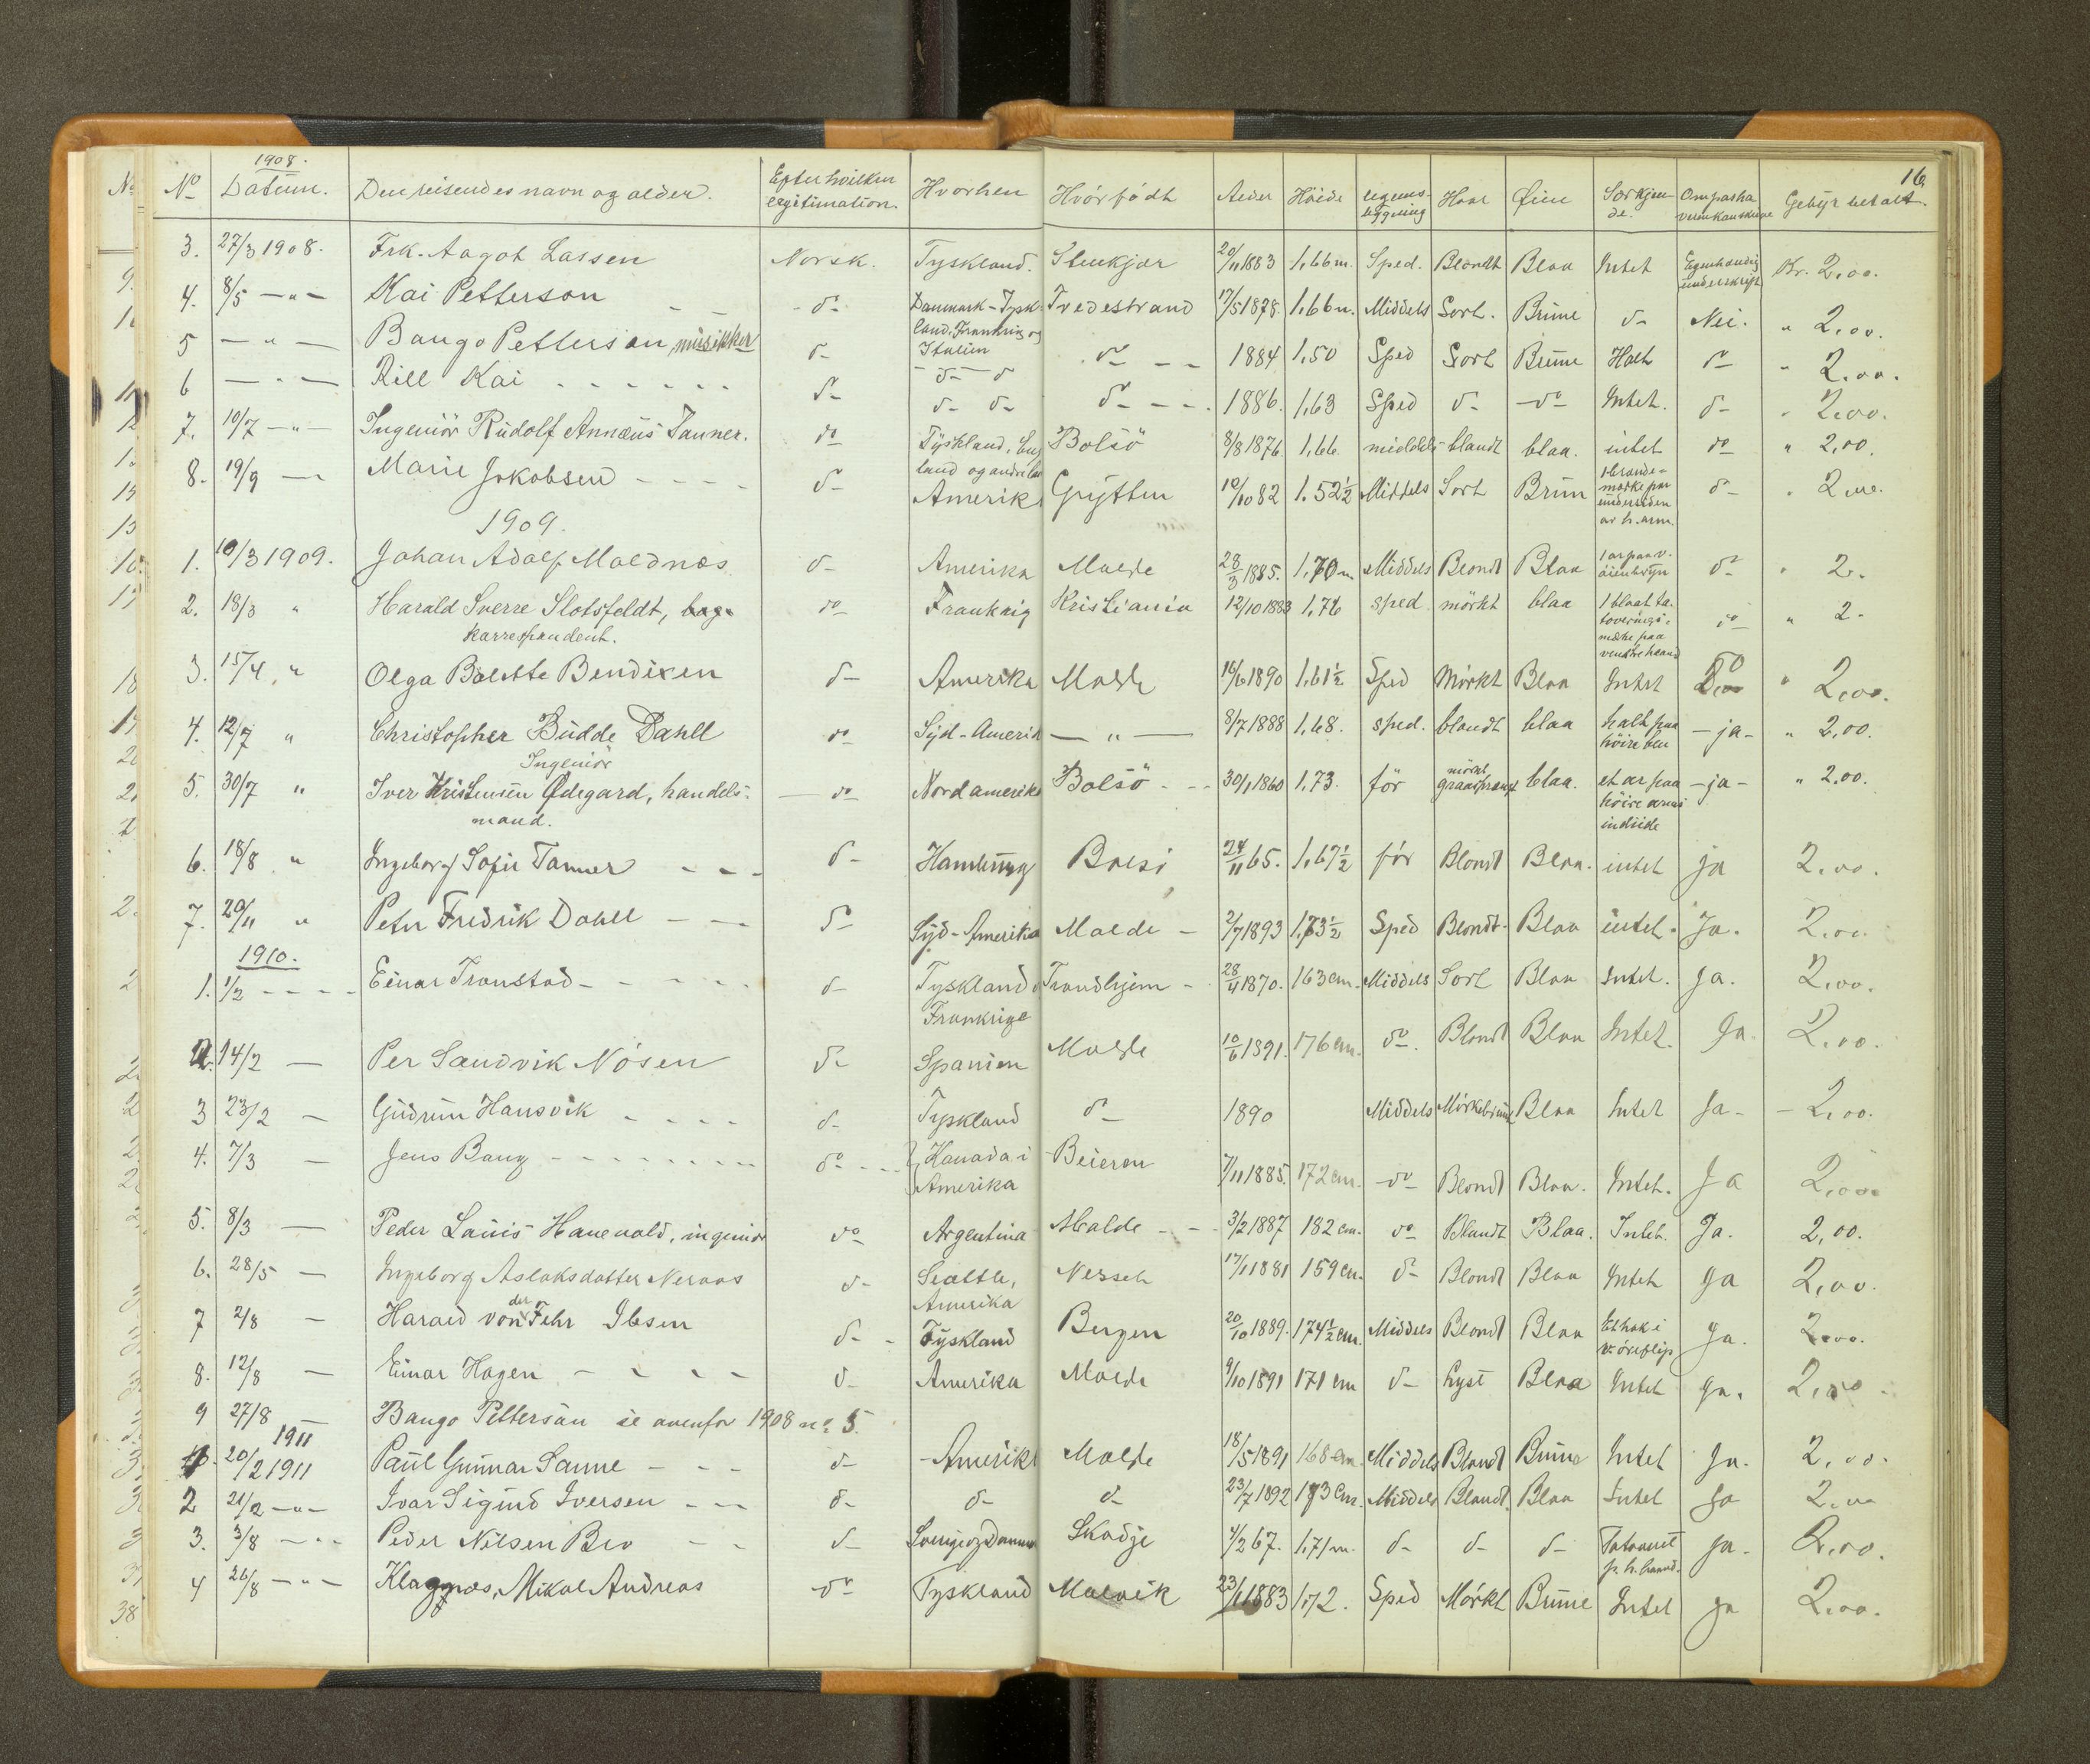 16.
1908.
No Datum. Den reisendes navn og alder. Efter hvilken legitimation. Hvorhen Hvor født Alder Höide Legems bygning Haar Øine Særkjende. Om pasha veren kan skrive Gebyr betalt.
3. 27/3 1908. Frk. Aagot Lassen Norsk. Tyskland. Stenkjær 20/11 1883 1,66 m. Sped. Blondt Blaa Intet Egenhændig underskrift Kr. 2,00.
4. 8/5 —"— Kai Petterson do Danmark-Tyskland, Frankrig og Italien Tvedestrand 17/5 1878. 1,66 m. Middels Sort. Brune do Nei. " 2,00.
5 —"— Bango Petterson, musikker do - do - do do - - 1884 1,50 Sped Sort Brune Halt do " 2,00.
6 —"— Rill Kai - - - - - - do do do do - - - 1886. 1,63 Sped do do Intet. do " 2,00.
7. 10/7 —"— Ingeniör Rudolf Annæus Tanner. do Tyskland, Eng land og andre Bolsö 8/8 1876. 1,66. middels blondt blaa. intet do " 2,00.
8. 19/9 — Marie Jakobsen - - - - do Amerik Grytten 10/10 82 1.52½ Middels Sort Brun 1 brandemærke paa undersiden av h. arm. do " 2,00.
1909.
1. 10/3 1909. Johan Adolf Moldnæs do Amerika Molde 28/3 1885. 1,70 m. Middels Blondt Blaa 1 ar paa v. øienbryn do " 2.
2. 18/3 " Harald Sverre Slotsfeldt, do Frankrig Kristiania 12/10 1883 1,76 sped mörkt blaa 1 blaat tatoverings mærke paa venstre haand do " 2.
korrespondent.
3. 15/4 " Olga Bolette Bendixen do Amerika Molde 16/6 1890 1,61½ Sped Mörkt Blaa Intet Do " 2,00.
4. 12/7 " Christopher Budde Dahll do Syd-Amerik — " — 8/7 1888 1,68. sped. blondt blaa halt paa höire ben - ja - " 2,00.
Ingeniör
5. 30/7 " Iver Kristensen Ødegard, handelsmand. do Nordamerika Bolsö - - 30/1 1860 1,73. för mörkt graasprængt blaa. et ar paa höire arms indside - ja - " 2,00.
6. 18/8 " Ingeborg Sofie Tanner - - - do Hamburg Bolsö 24/11 65. 1,67½ för Blondt Blaa. intet ja 2,00.
7. 20/11 " Peter Fredrik Dahll - - do Syd-Amerika Molde - 2/7 1893 1,73½ Sped Blondt Blaa intet. Ja. 2,00
1910.
1. 1/2 - - - - Einar Tronstad - - - - - do Tyskland Frankrige Trondhjem - 28/4 1870. 163 cm. Middels Sort Blaa Intet. Ja. 2,00.
2. 14/2 — Per Sandvik Nösen do Spanien Molde 10/6 1891. 176 cm. do Blondt Blaa Intet. Ja. 2,00.
3 23/2 — Gudrun Hansvik - - - - do Tyskland do 1890 Middels Mörkebrunt Blaa Intet Ja - - 2,00.
4. 7/3 — Jens Bang - - - - - - - do - - - Kanada i Amerika Beieren 7/11 1885. 172 cm. do Blondt Blaa. Intet. Ja 2,00
5. 8/3 — Peder Lauis Hanevold, ingeniör do Argentina Molde - - - 3/2 1887 182 cm. do Blondt Blaa. Intet. Ja. 2,00.
6. 28/5 — Ingeborg Aslaksdatter Neraas do Seattle, Amerika Nesset 17/1 1881 159 cm. do Blondt Blaa Intet Ja 2,00.
7 2/8 — Harald von der Fehr Ibsen do - Tyskland Bergen 20/10 1889. 174½ cm. Middels Blondt Blaa Et hak i v. öreflip Ja. 2,00.
8. 12/8 — Einar Hagen - - - - do Amerika Molde 9/10 1891 171 cm do Lyst Blaa Intet Ja. 2,00 -
9 27/8 — Bango Petterson se ovenfor 1908 no 5.
1911
1. 20/2 1911 Paul Gunnar Sanne - - - do - Amerika Molde 18/5 1891 168 cm. Middels Blondt Brune Intet Ja. 2,00.
2 21/2 —"— Ivar Sigurd Iversen - - - do do do 23/7 1892 173 cm. Middels Blondt. Blaa Intet Ja 2,00
3. 3/8 —"— Peder Nilsen Bro - - do Sverige og Danmark Skodje 4/2 67. 1,71 m. do do do Tatoveret p. h. haand. Ja. 2,00.
4 26/8 —"— Klagnæs, Mikal Andreas do Tyskland Malvik 23/11 1883 1,72. Sped Mörkt Brune Intet Ja 2,00.
38